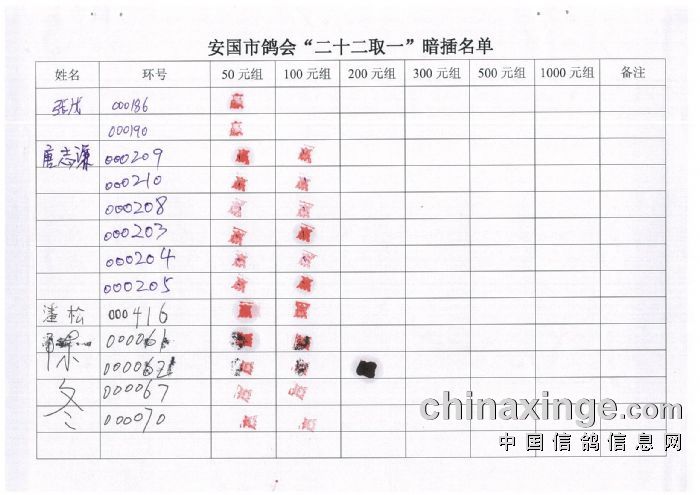 安国市鸽会“二十二取一”暗插名单
姓名 环号 50 元组 100 元组 200 元组 300 元组 500 元组 1000 元组 备注
张戊 000186
000190
唐志谦 000209
000210
000208
000203
000204
000205
潘松 000416
000061
000067
000070
chinaxinge.com
中国信鸽信息网